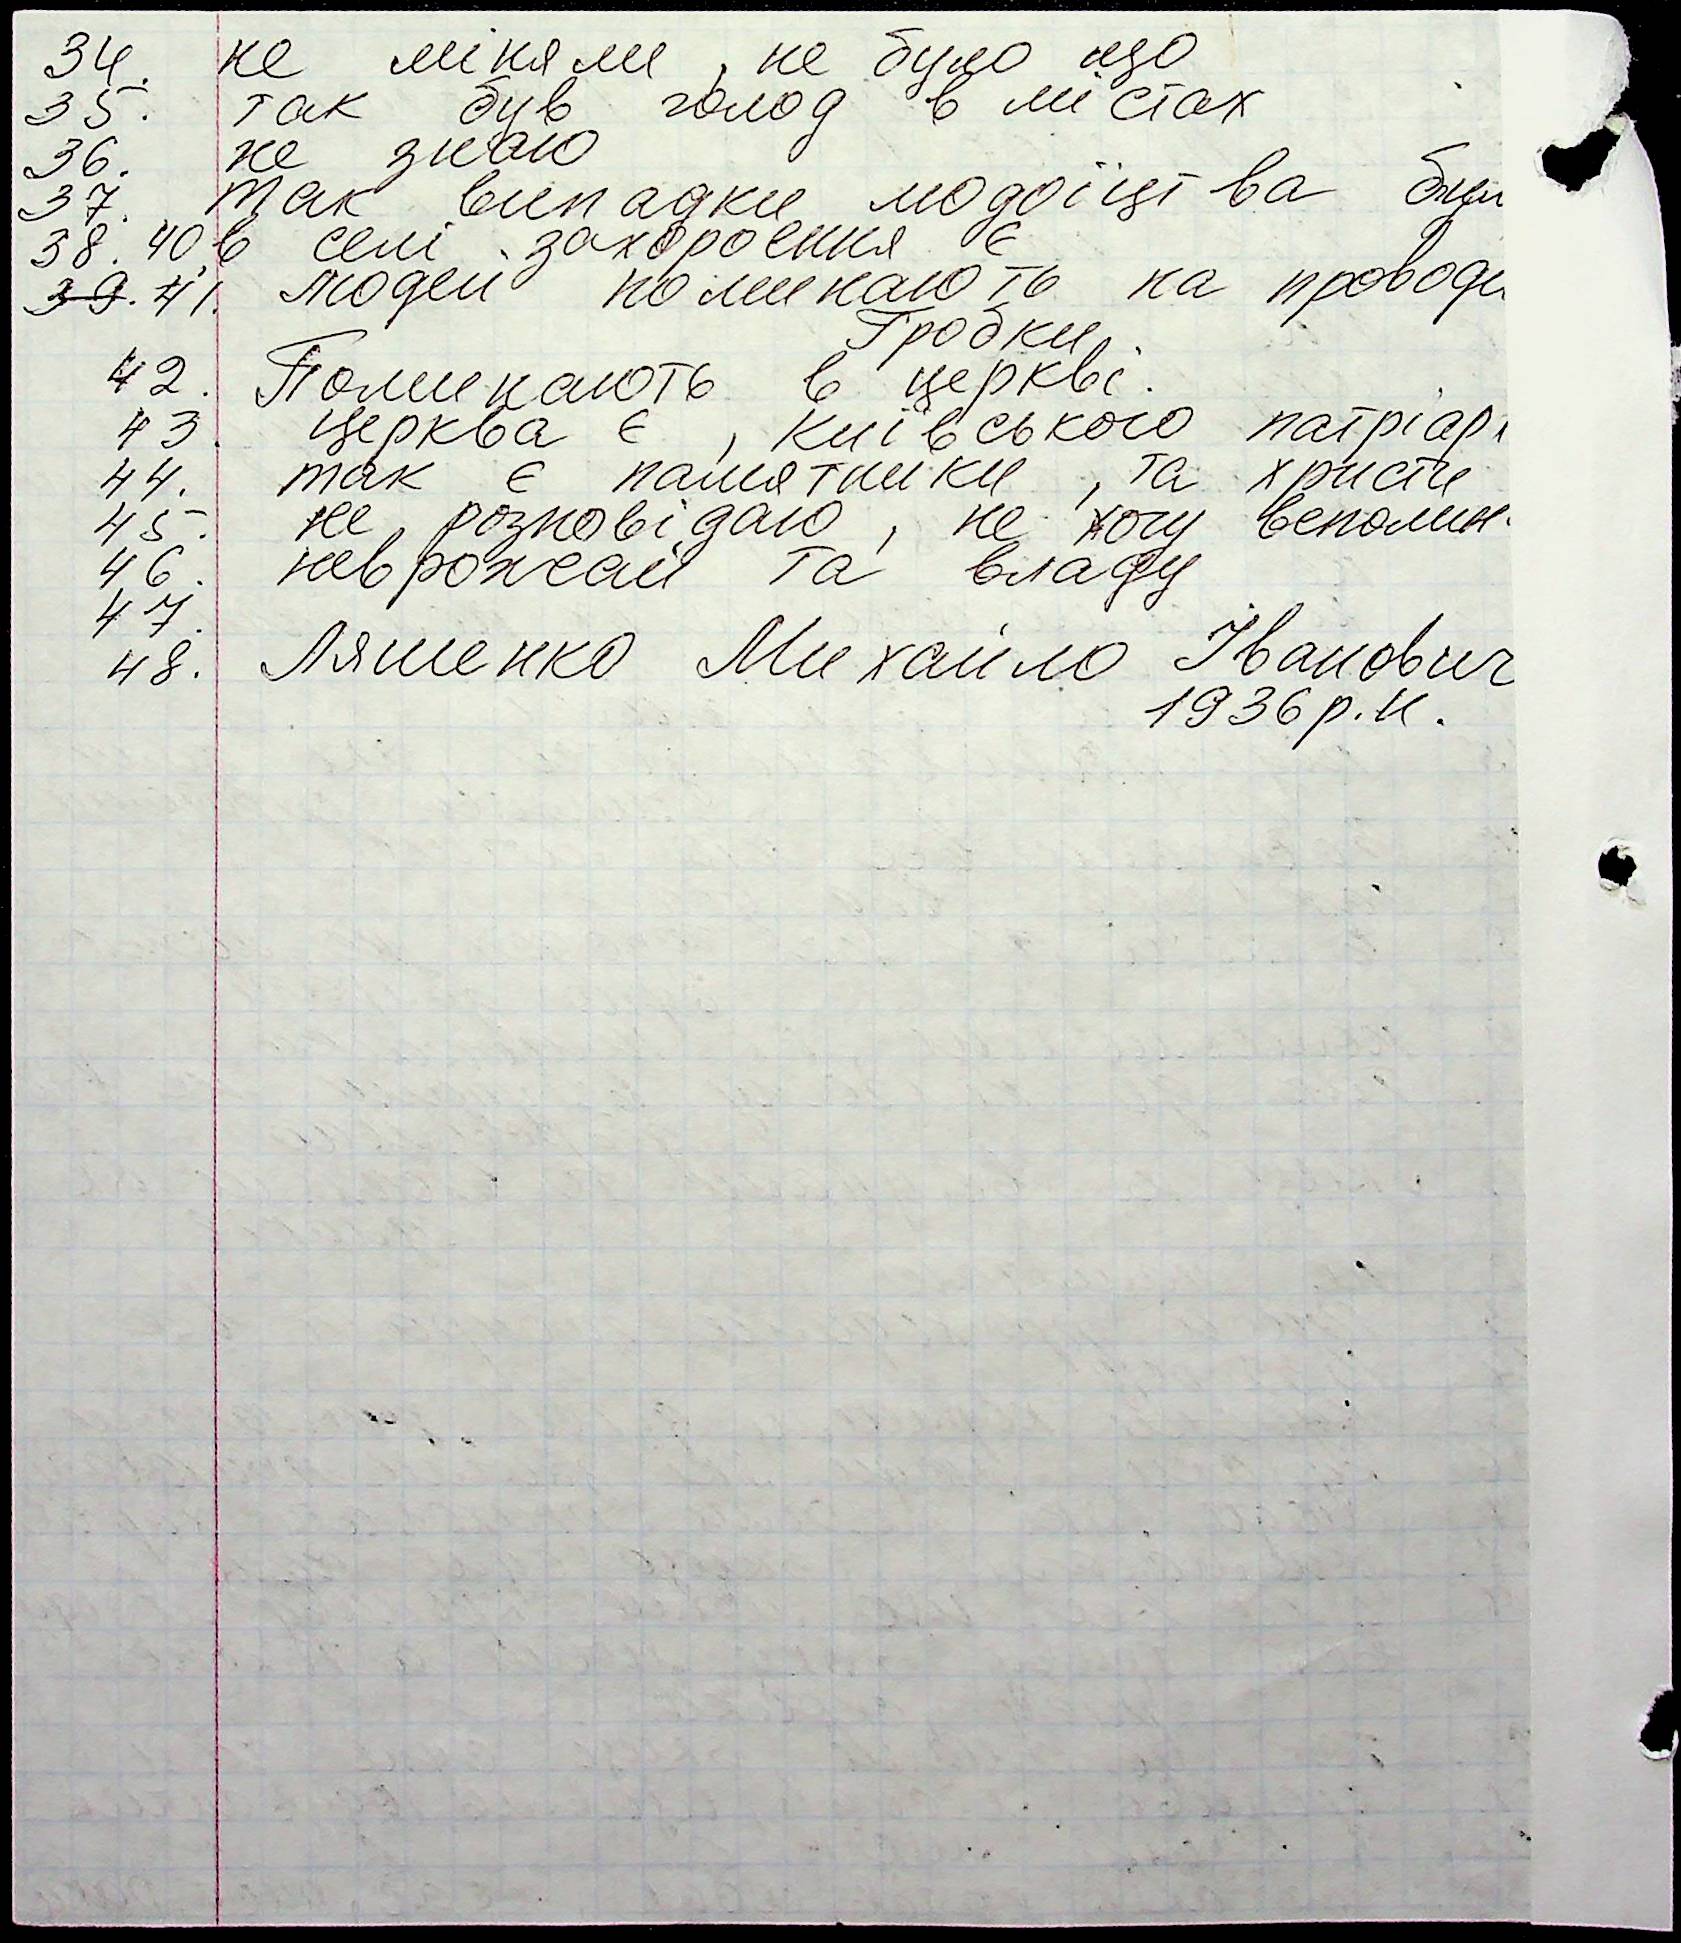 34. не міняли, не було що
35. так був голод в містах
36. не знаю
37. так випадки людоїцтва були
38. 40. в селі захороення є
39. 41. людей поминають на проводи
Гробки.
42. Поминають в церкві.
43. церква є, київського патріарх
44. так є памятники, та христи
45. не розповідаю, не хочу вспомин.
46. неврожай та владу
47.
48. Ляшенко Михайло Іванович
1936 р.н.